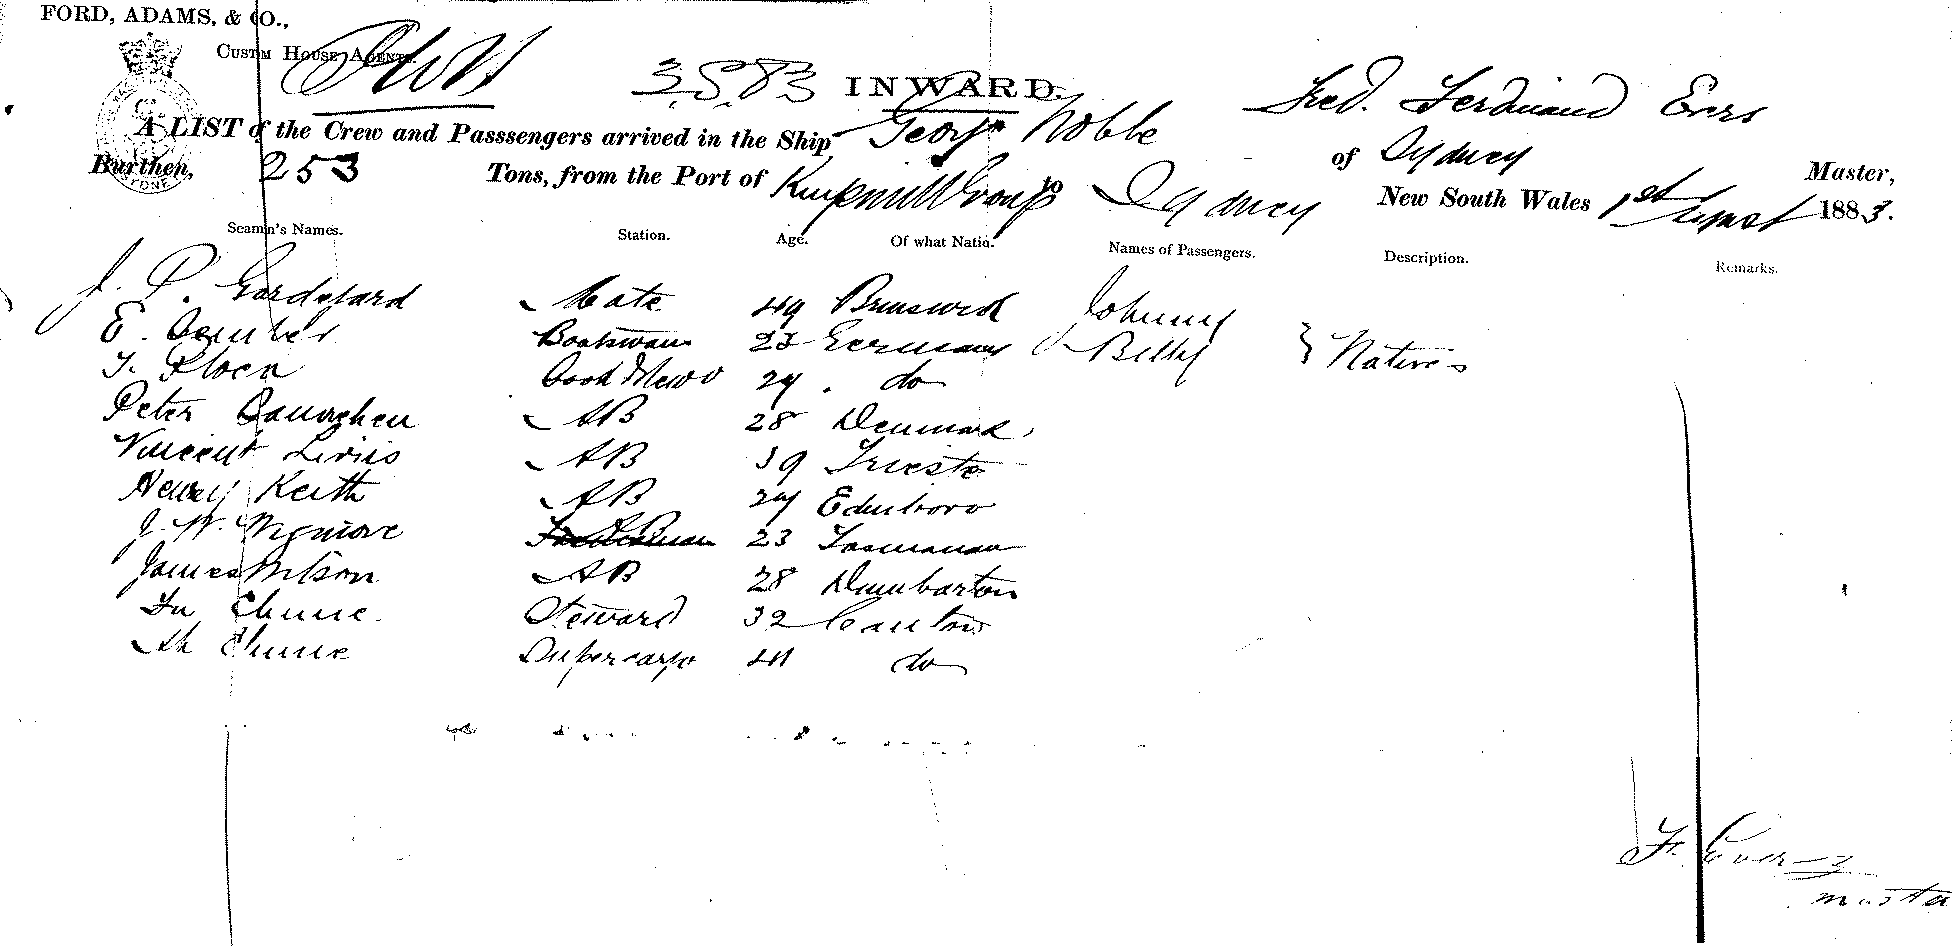 FORD, ADAMS, & CO.,
CUSTOM HOUSE AGENTS.
3.8.83 INWARD. Fred. Ferdinand Evers
A LIST of the Crew and Passsengers arrived in the Ship George Noble of Sydney Master,
Burthen, 253 Tons, from the Port of to Sydney New South Wales 1st August 1883.
Seamen's Names. Station. Age. Of what Natio. Names of Passengers. Description. Remarks.
J. P. Mate 49 Brunswick Johnny
E. Boatswain 23 Germany Billy } Natives
Cook & Stewd 24 do
Peter AB 28 Denmark
Vincent Livius AB 39 Trieste
Henry Keith AB 24 Edinboro
J. W. Wigmore AB 23 Tasmanian
James Wilson AB 28 Dumbarton
Chune Steward 32 Canton
Ah Chune Supercargo 41 do
F. Evers
master